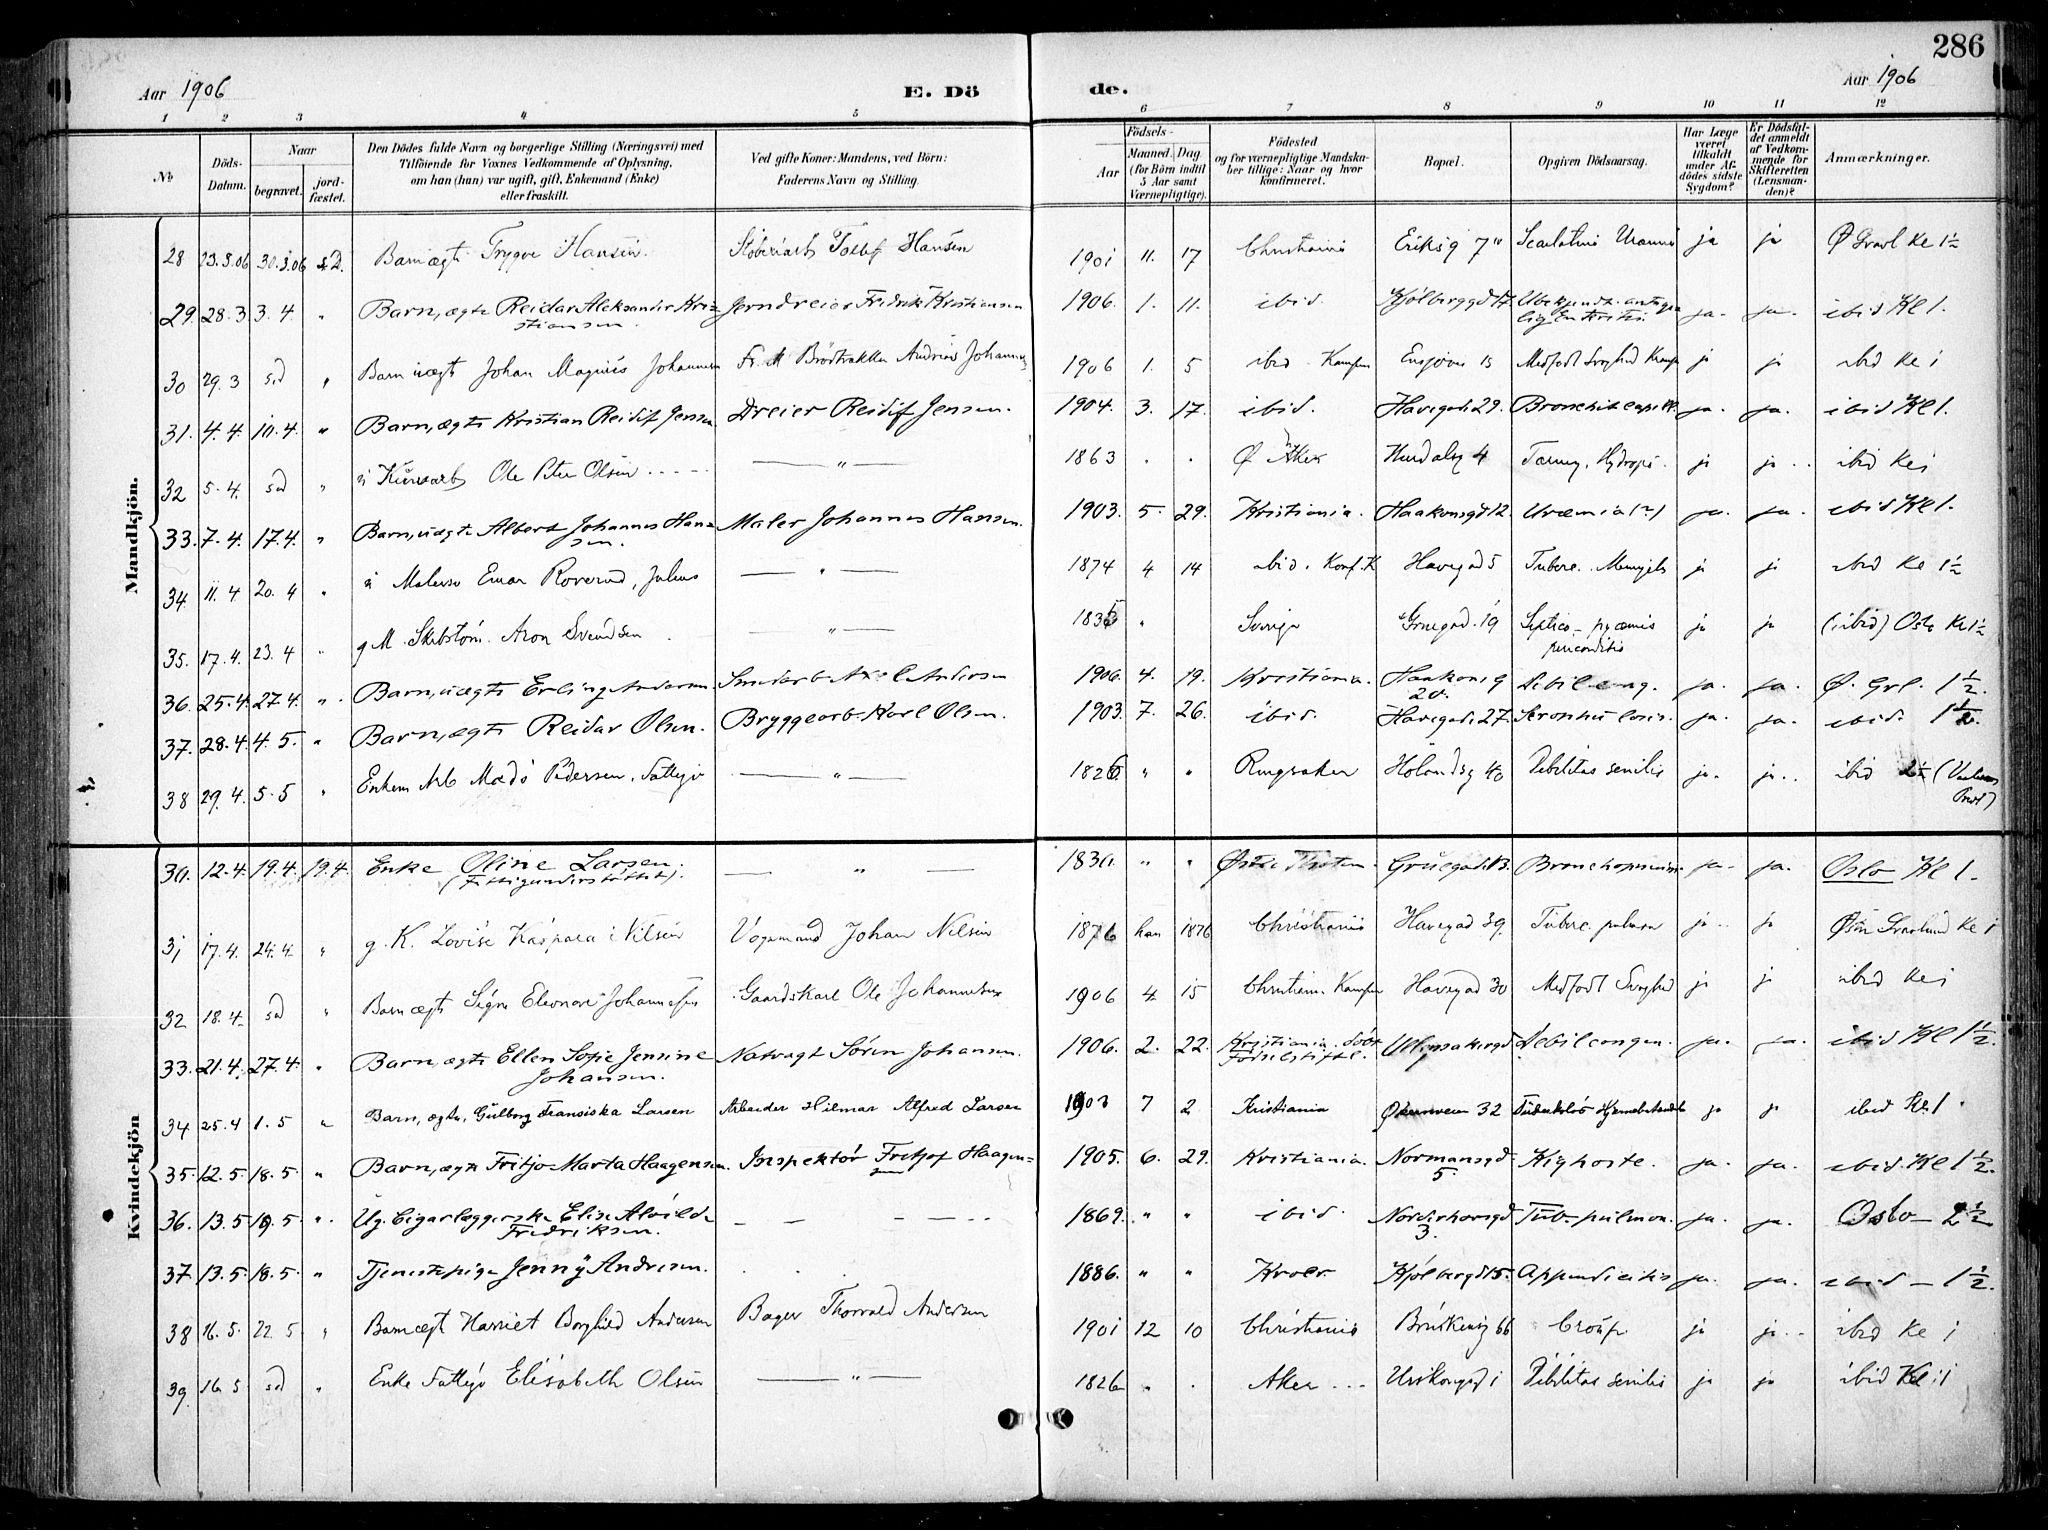 286
Aar 1906
E. Dö
de.
Aar 1906
1 2 3 4 5 6 7 8 9 10 11 12
No
Döds-Datum.
Naar
begravet.
jord-fæstet.
Den Dödes fulde Navn og borgerlige Stilling (Næringsvei) med
Tilföiende for Voxnes Vedkommende af Oplysning,
om han (hun) var ugift, gift, Enkemand (Enke)
eller fraskilt.
Ved gifte Koner: Mandens, ved Börn:
Faderens Navn og Stilling.
Födsels-
Aar
Maaned. Dag
(for Börn indtil
5 Aar samt
Værnepligtige).
Födested
og for værnepligtige Mandska-
ber tillige: Naar og hvor
konfirmeret.
Bopæl.
Opgiven Dödsaarsag.
Har Læge
været
tilkaldt
under Af-
dödes sidste
Sygdom?
Er Dödsfal-
det anmeldt
af Vedkom-
mende for
Skifteretten
(Lensman-
den)?
Anmærkninger.
Mandkjön.
28 23.3.06 30.3.06 s.D. Barn ægte Trygve Hansen. Hansen 1901 11. 17 Christiania Eriksg 7 ja ja Ø Gravl Kl 1½
29. 28.3 3.4. " Barn, ægte Reidar Aleksander Kri=
stiansen. Jerndreier Fredrik Kristiansen 1906. 1. 11. ibid. Kjølberggd 17 ja. ja. ibid Kl 1.
30 29.3 sd " Barn uægt Johan Magnus Johannesen 1906 1. 5 ibid. Kampen Ensjøvn 15 Medfødt Svaghed ja ja ibid Kl 1
31. 4.4. 10.4. " Barn, ægte Kristian Reidif Jensen Dreier Reidif Jensen. 1904. 3. 17 ibid. Havegade 29. Bronchit capill. ja. ja. ibid Kl 1.
32 5.4. sd " Ole Peter Olsen — " — 1863 . . Ø Aker Hurdalsg 4 Hydrops. ja ja ibid Kl 1
33. 7.4. 17.4. " Barn, uægte Albert Johannes Han=
sen. Maler Johannes Hansen. 1903. 5. 29. Kristiania. Haakonsgd 12. Uræmia (?) ja. ja. ibid Kl 1.
34 11.4 20.4 " Einar Roverud, Julius — " — 1874 4 14 ibid. Konf. K Havegad 5 Tuberc. ja ja ibid Kl 1½
35. 17.4. 23.4 " g M. Aron Svendsen — " — 1835 " Sverige Gruegad. 19 Septico-pyæmia ja ja (ibid) Oslo Kl 1½
36. 25.4. 27.4. " Barn, uægte Erling Andersen. Smedarb. Axel Andersen 1906. 4. 19. Kristiania. Haakonsg
20. Debil. cong. ja. ja. Ø. Grl. 1½.
37. 28.4. 4.5. " Barn, ægte Reidar Olsen. Bryggearb. Karl Olsen. 1903. 7. 26. ibid. Havegade 27. ja. ja. ibid. 1½.
38 29.4. 5.5 " Enkem Arb Mads Pedersen. Fattigu — " — 1826 " " Ringsaker Hölandsg 40 Debilitas senilis ja. ja. ibid 2½
Kvindekjön
30. 12.4. 19.4. 19.4. Enke Oline Larsen.
(Fattigunderstöttet). — " — 1830. " " Østre Thoten. Gruegad. 13. Bronchopneum. ja. ja. Oslo Kl 1.
31 17.4. 24.4. " g. K. Lovise Kaspara Nilsen Vognmand Johan Nilsen 1876 1876 Christiania Havegad 39 Tuberc. pulmon ja ja Kl 1
32 18.4. sd " Barn ægt Signe Eleonore Johannesen Gaardskarl Ole Johannesen 1906 4. 15 Christiania. Kampen Havegad 30 Medfødt Svaghed ja ja ibid Kl 1
33. 21.4. 27.4. " Barn, ægte Ellen Sofie Jensine
Johansen. Natvagt Sören Johansen. 1906. 2. 22. Kristiania. Födselsstiftl. Debil congen. ja. ja. ibid Kl 1½.
34 25.4 1.5 " Barn, ægte, Gulborg Fransiska Larsen Arbeider Hilmar Alfred Larsen 1903 7 2 Kristiania Økernveien 32 Tuberkuløs Hjernebetændelse ja ja ibid Kl. 1.
35. 12.5. 18.5. " Barn, ægte Fritjo Marta Haagensen. Inspektör Fritjof Haagen=
sen 1905. 6. 29. Kristiania. Normansgd.
5. Kighoste. ja. ja. ibid. Kl 1½.
36. 13.5 19.5 " Ug. Cigarlæggerske Elise Alvilde
Fredriksen. 1869. " " ibid. Norderhovsgd
3. Tub. pulmon. ja. ja. Oslo — 2½
37. 13.5. 18.5. " Tjenestepige Jenny Andresen. . . 1886. " " Kroer. Kjölberggd 15. Appendicitis ja. ja. ibid — 1½.
38 16.5. 22.5 " Barn ægt Harriet Borghild Andersen Bager Thorvald Andersen 1901 12 10 Christiania 66 Croup ja ja ibid Kl 1
39 16.5 sd " Enke Fattigu Elisabeth Olsen — " — 1826 " . Aker Debilitas senilis ja ja ibid Kl 1